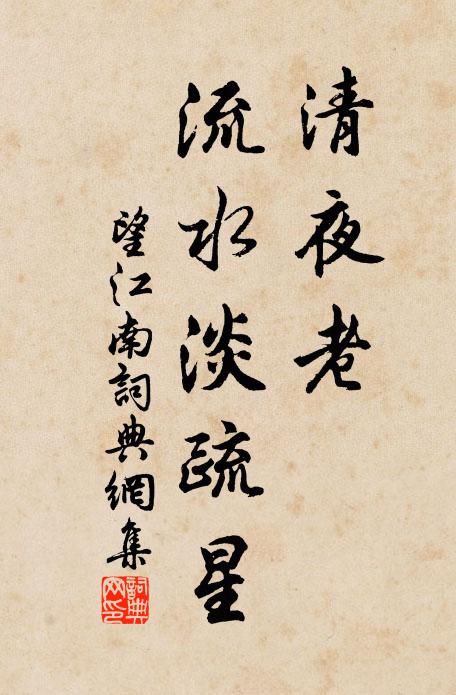 清夜老
流水淡疏星
望江南詞典網集
詞典网印